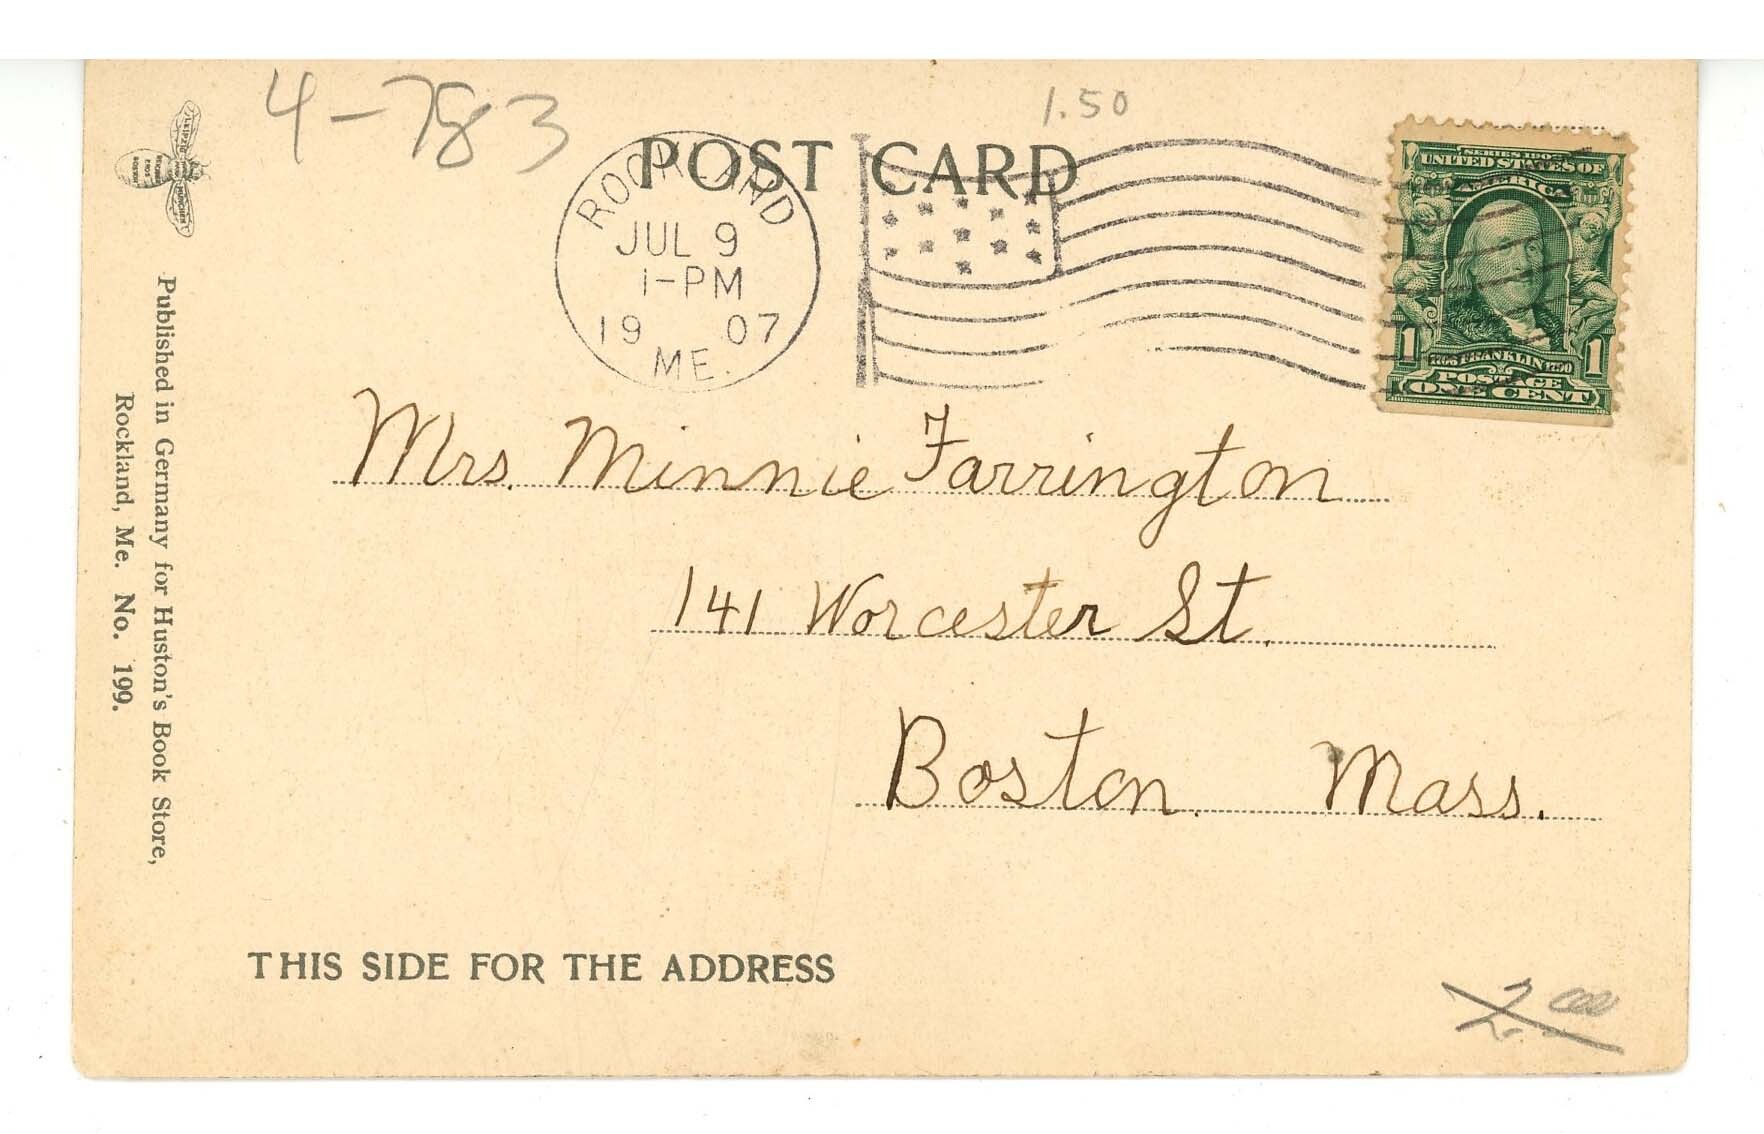 4-783
1.50
POST CARD
ROCKLAND
JUL 9
1-PM
19 07
ME.
SERIES 1902
UNITED STATES OF
AMERICA
1 1706 FRANKLIN 1790 1
POSTAGE
ONE CENT
Mrs. Minnie Farrington
141 Worcester St.
Boston. Mass.
THIS SIDE FOR THE ADDRESS
2.00
Published in Germany for Huston's Book Store,
Rockland, Me. No. 199.